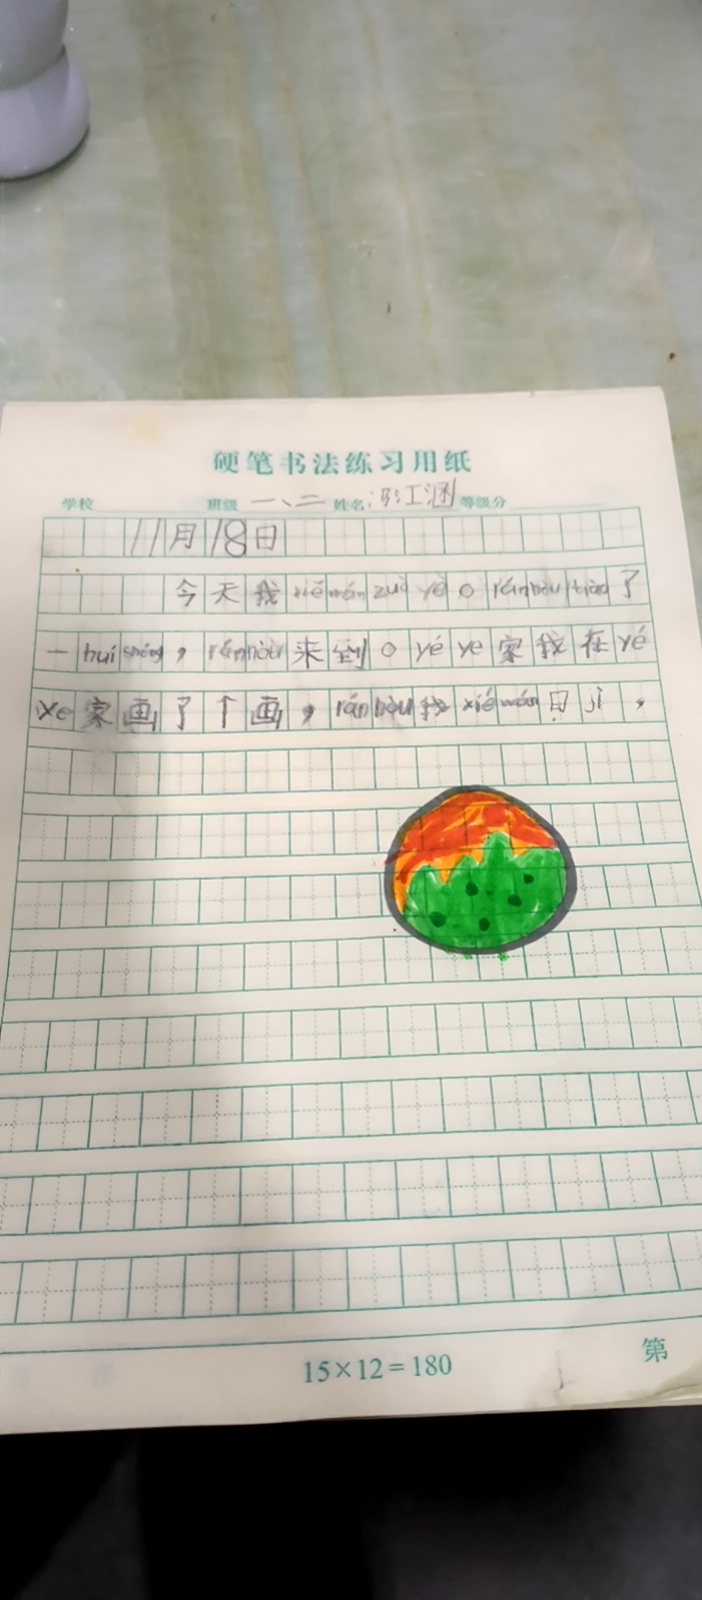 硬笔书法练习用纸
学校 班级 一、二 姓名 江涵 等级分
11月18日
今天我xiě wán zuò yè o rán hòu tiào了
一huí shéng，rán hòu来到o yé ye家我在yé
ye家画了个画，rán hòu我xiě wán日jì，
15×12=180
第